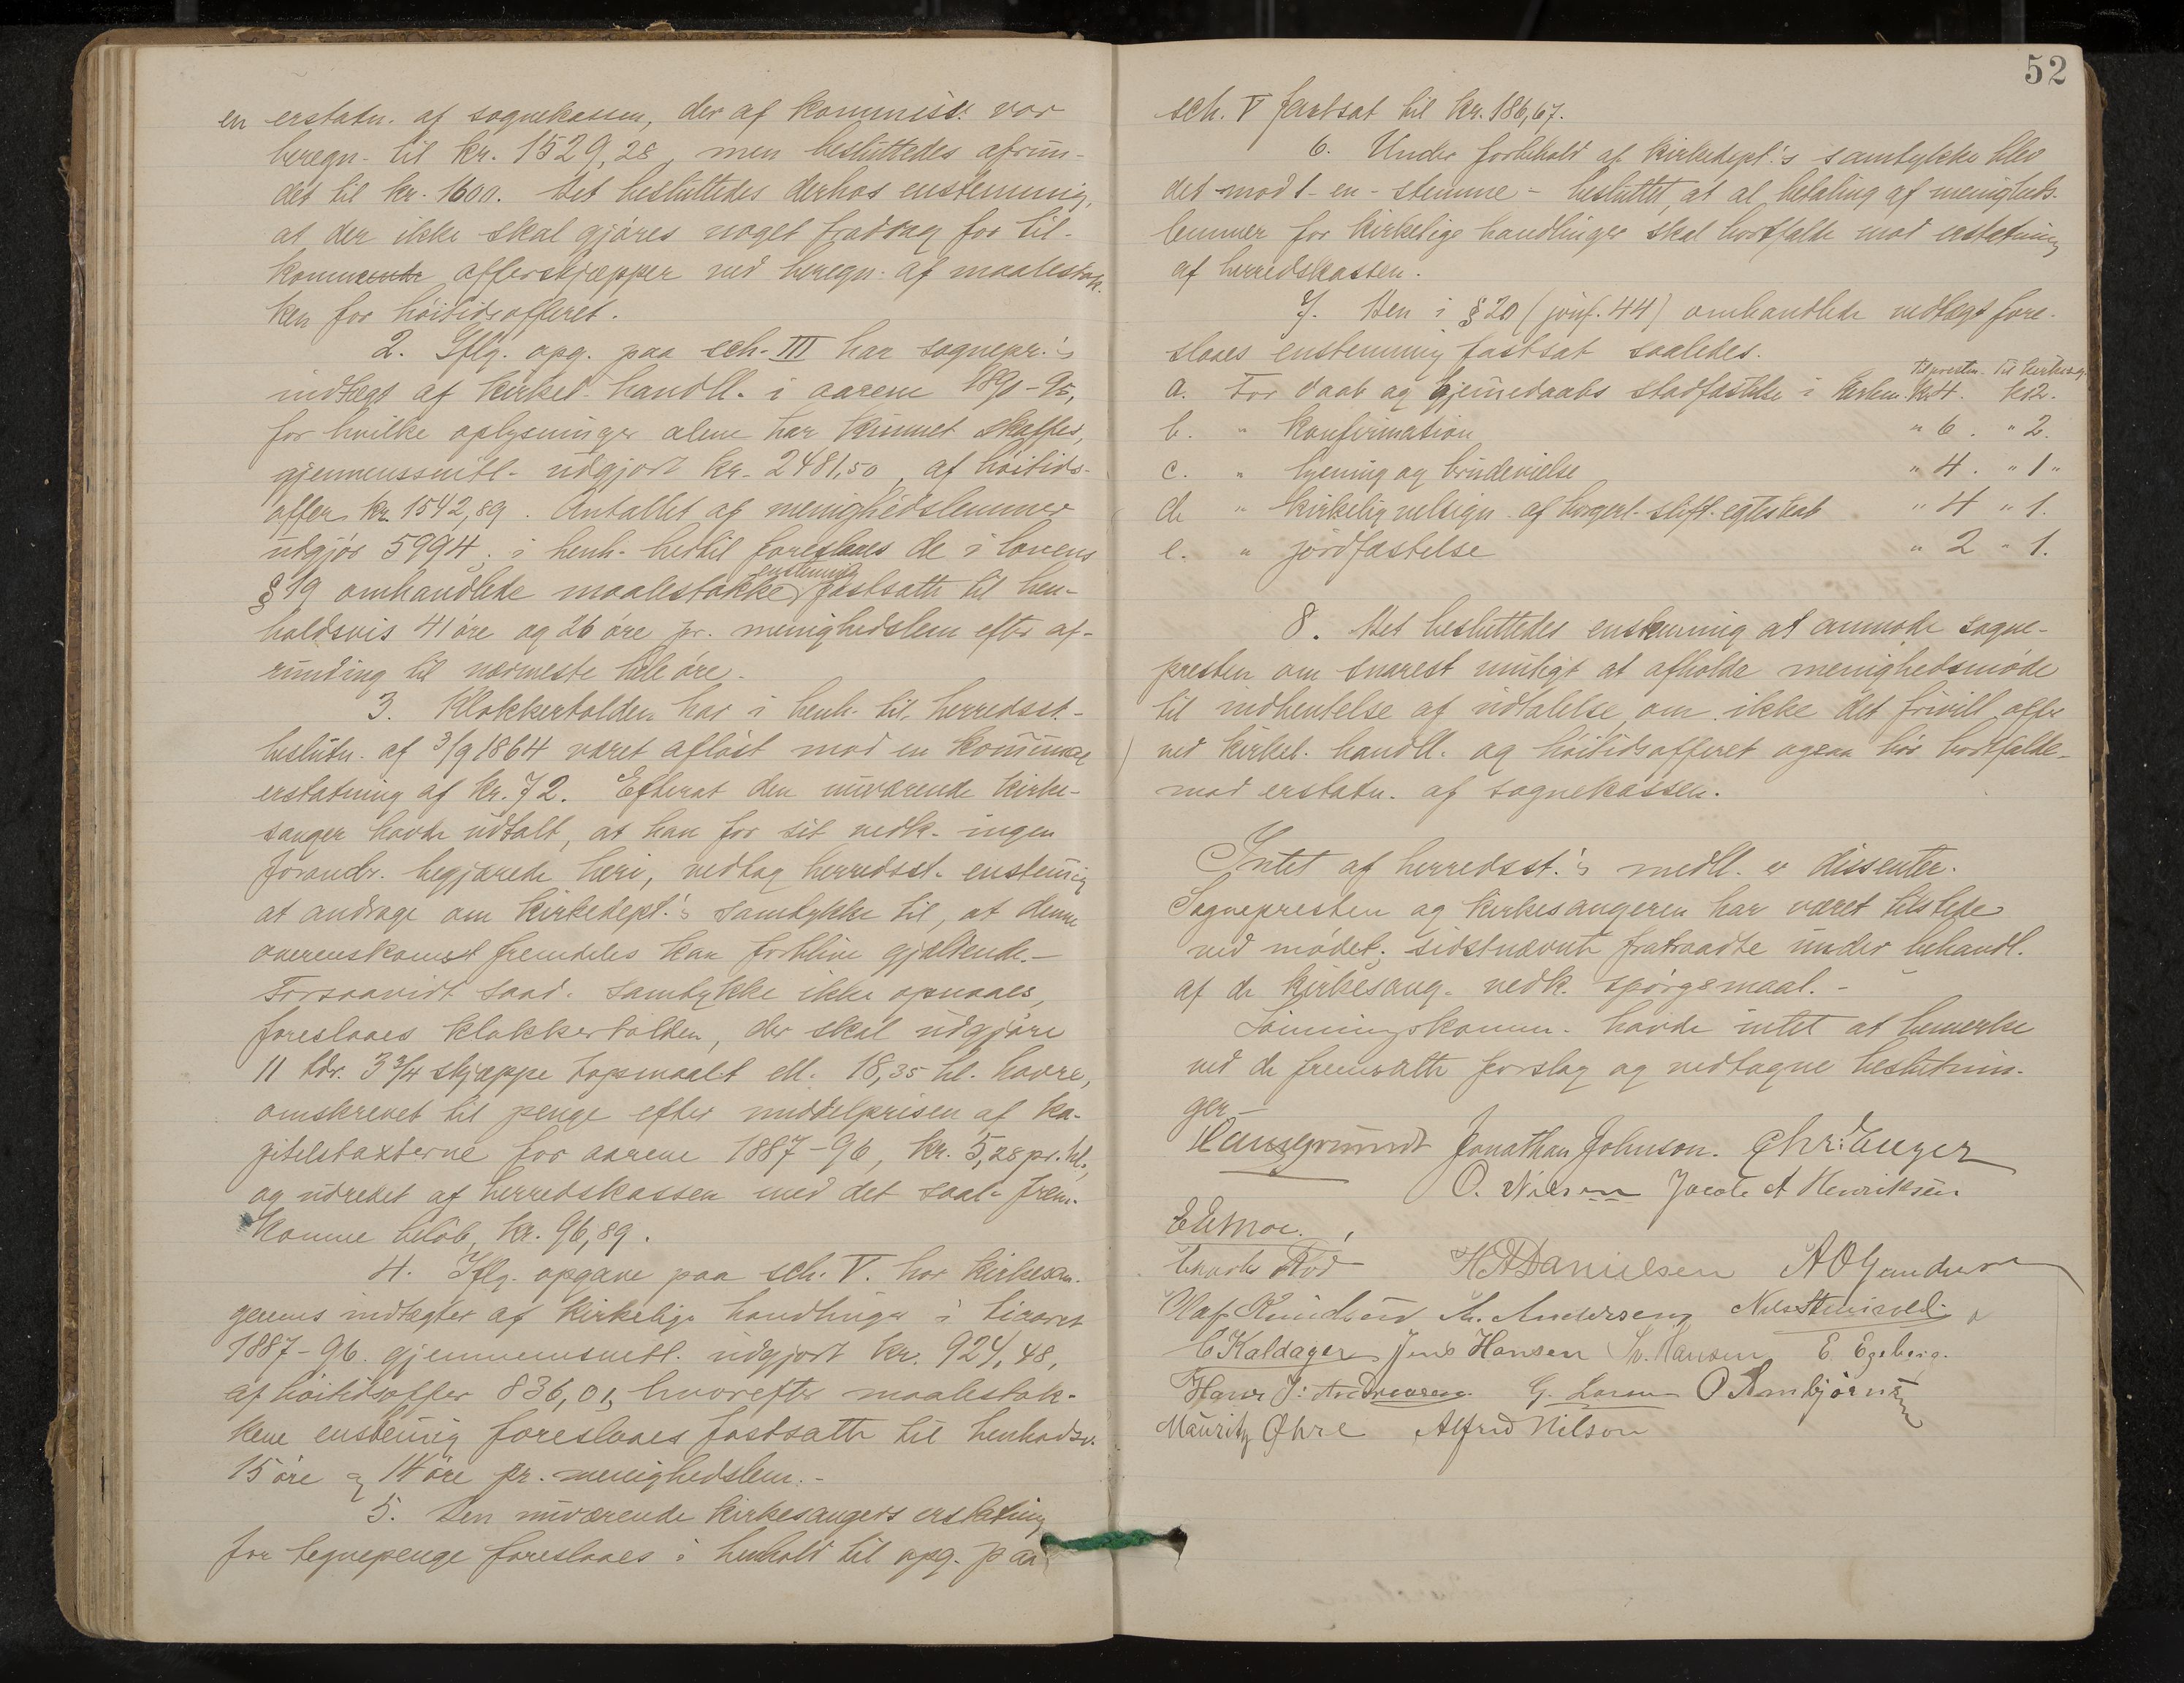 en erstatn. af sognekassen, der af kommiss: var
beregn. til kr. 1529,28, men besluttedes afrun-
det til kr. 1600. Det besluttedes derhos enstemmig,
at der ikke skal gjøres noget fradrag for til-
kommende offerskjæpper ved beregn. af maalestok-
ken for høitidsofferet.
2. Iflg. opg. paa sch. III har sognepr.'s
indtægt af kirkel. handll. i aarene 1890-95,
for hvilke oplysninger alene har kunnet skaffes,
gjennemssnitl. udgjort kr. 2481,50, af høitids-
offer kr. 1542,89. Antallet af menighedslemmer
udgjør 5994; i henh. hertil foreslaaes de i lovens
enstemmig
§ 19 omhandlede maalestokke fastsatte til hen-
holdsvis 41 øre og 26 øre pr. menighedslem efter af-
runding til nærmeste hele øre.
3. Klokkertolden har i henh. til herredsst.-
beslutn. af 3/9 1864 været afløst mod en kommunal
erstatning af kr. 72. Efterat den nuværende kirke-
sanger havde udtalt, at han for sit vedk. ingen
forandr. begjærede heri, vedtog herredsst. enstemig
at andrage om kirkedept.'s samtykke til, at denne
overenskomst fremdeles kan forblive gjældende.-
Forsaavidt saad. samtykke ikke opnaaes,
foreslaaes klokkertolden, der skal udgjøre
11 tdr. 3 3/4 skjæppe topmaalt ell. 18,35 hl. havre,
omskrevet til penge efter middelprisen af ka-
pitelstaxterne for aarene 1887-96, kr. 5,28 pr. hl.,
og udredet af herredskassen med det saal. frem-
komne beløb, kr. 96,89.
4. Iflg. opgave paa sch. V. har kirkesan-
gerens indtægter af kirkelige handlinger i tiaaret
1887-96 gjennemsnitl. udgjort kr. 924,48,
af høitidsoffer 836,01, hvorefter maalestok-
kene enstemig foreslaaes fastsatte til henholdsv.
15 øre og 14 øre pr. menighedslem.-
5. Den nuværende kirkesangers erstatning
for tegnepenge foreslaaes i henhold til opg. paa
52
sch. V fastsat til kr. 186,67.
6. Under forbehold af kirkedept.'s samtykke blev
det mod 1 - en - stemme - besluttet, at al betaling af menigheds-
lemmer for kirkelige handlinger skal bortfalde mod erstatning
af herredskassen.
7. Den i § 20 (jvnf. 44) omhandlede indtægt fore-
slaaes enstemmig fastsat saaledes.
Til presten. Til kirkesg.
a. For daab og hjemmedaabs stadfæstelse i kirken. Kr. 4. Kr. 2.
b. " Konfirmation " 6. " 2.
c. " lysning og brudevielse " 4. " 1 "
d. " kirkelig velsign. af borgerl. stift. egteskab " 4 " 1.
e. " jordfæstelse " 2 " 1.
8. Det besluttedes enstemmig at anmode sogne-
presten om snarest muligt at afholde menighedsmøde
til indhentelse af udtalelse om ikke det frivill. offer
ved kirkel. handll. og høitidsofferet ogsaa bør bortfalde
mod erstatn. af sognekassen.
Intet af herredsst.'s medll. er dissenter.
Sognepresten og kirkesangeren har været tilstede
ved mødet; sidstnævnte fratraadte under behandl.
af de kirkesang. vedk. spørgsmaal.-
Lønningskomm. havde intet at bemerke
ved de fremsatte forslag og vedtagne beslutnin-
ger.-
Hans Grundt Jonathan Johnson. Chr: Enger
O. Nilsen Jacob A Henriksen
E. Moe.
H A Danielsen A O Gundersen
Olaf Knudsen A. Andersen Nils Stensvold
C Kaldager Jens Hansen Sv. Hansen E Egeberg.
Hans J. Andreasen. G. Larsen O Arnbjørnsen
Mauritz Øhre Alfred Nilson